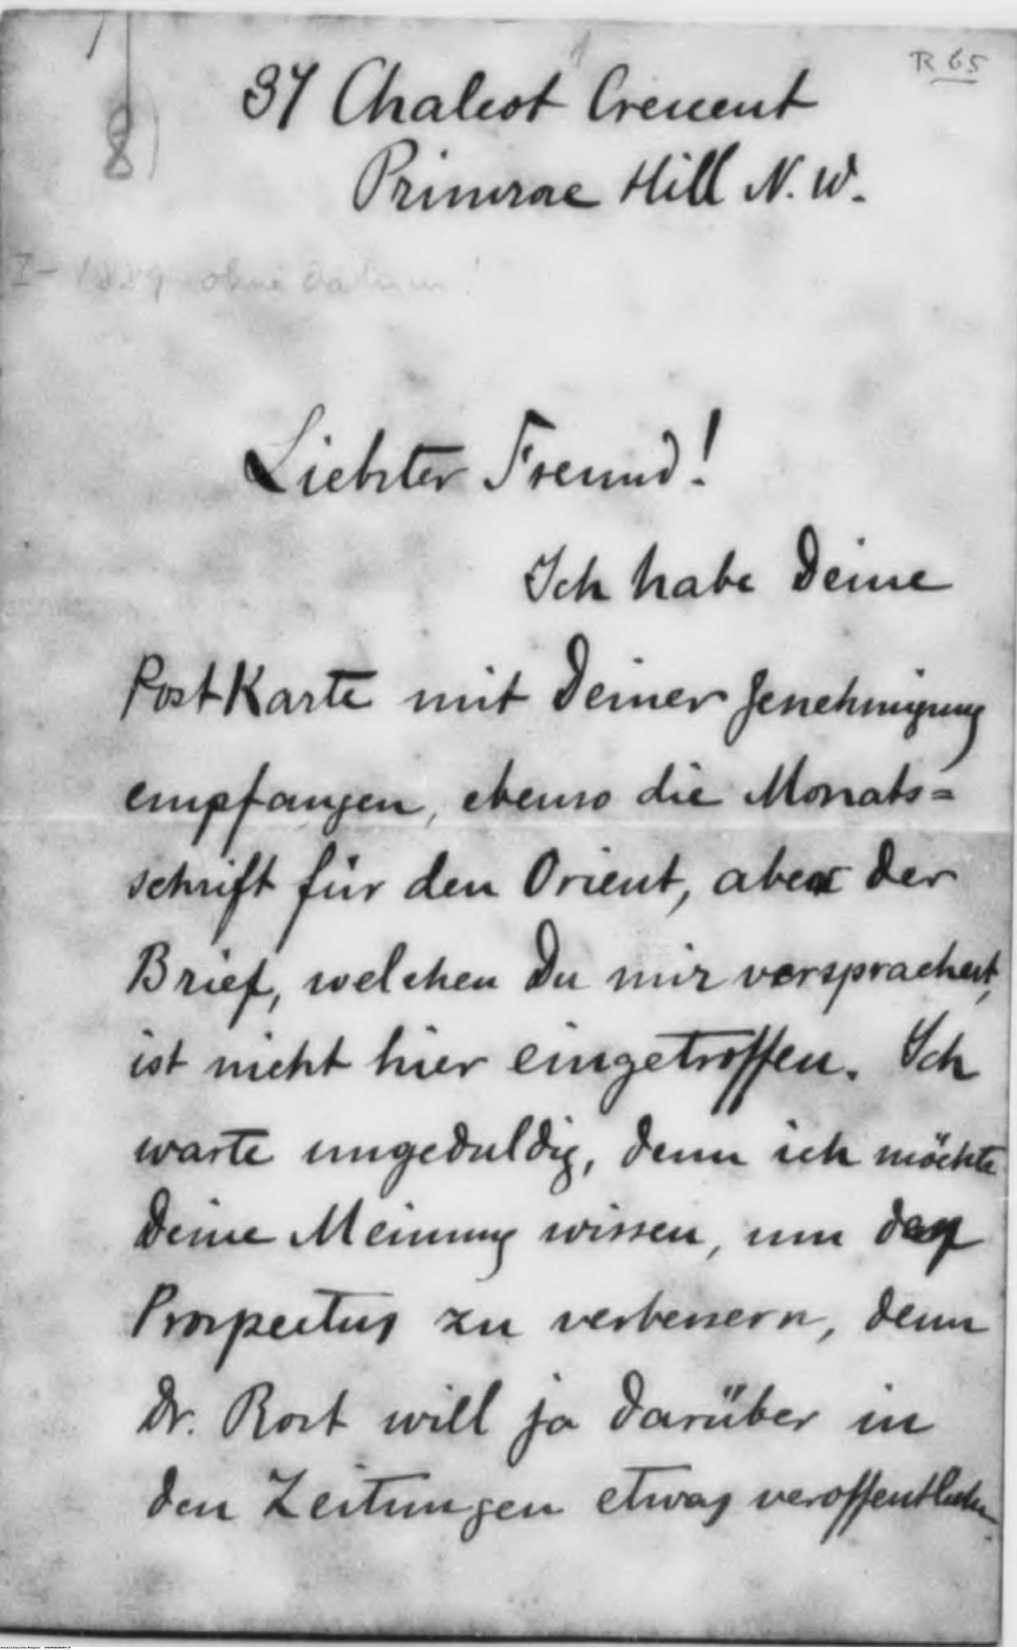 R 65
8)
37 Chalcot Crescent
Primrose Hill N. W.
I - 1889 ohne Datum!
Liebster Freund!
Ich habe Deine
Postkarte mit Deiner Genehmigung
empfangen, ebenso die Monats=
schrift für den Orient, aber der
Brief, welchen Du mir versprachest,
ist nicht hier eingetroffen. Ich
warte ungeduldig, denn ich möchte
Deine Meinung wissen, um das
Prospectus zu verbessern, denn
Dr. Rost will ja darüber in
den Zeitungen etwas veroffentlichen.